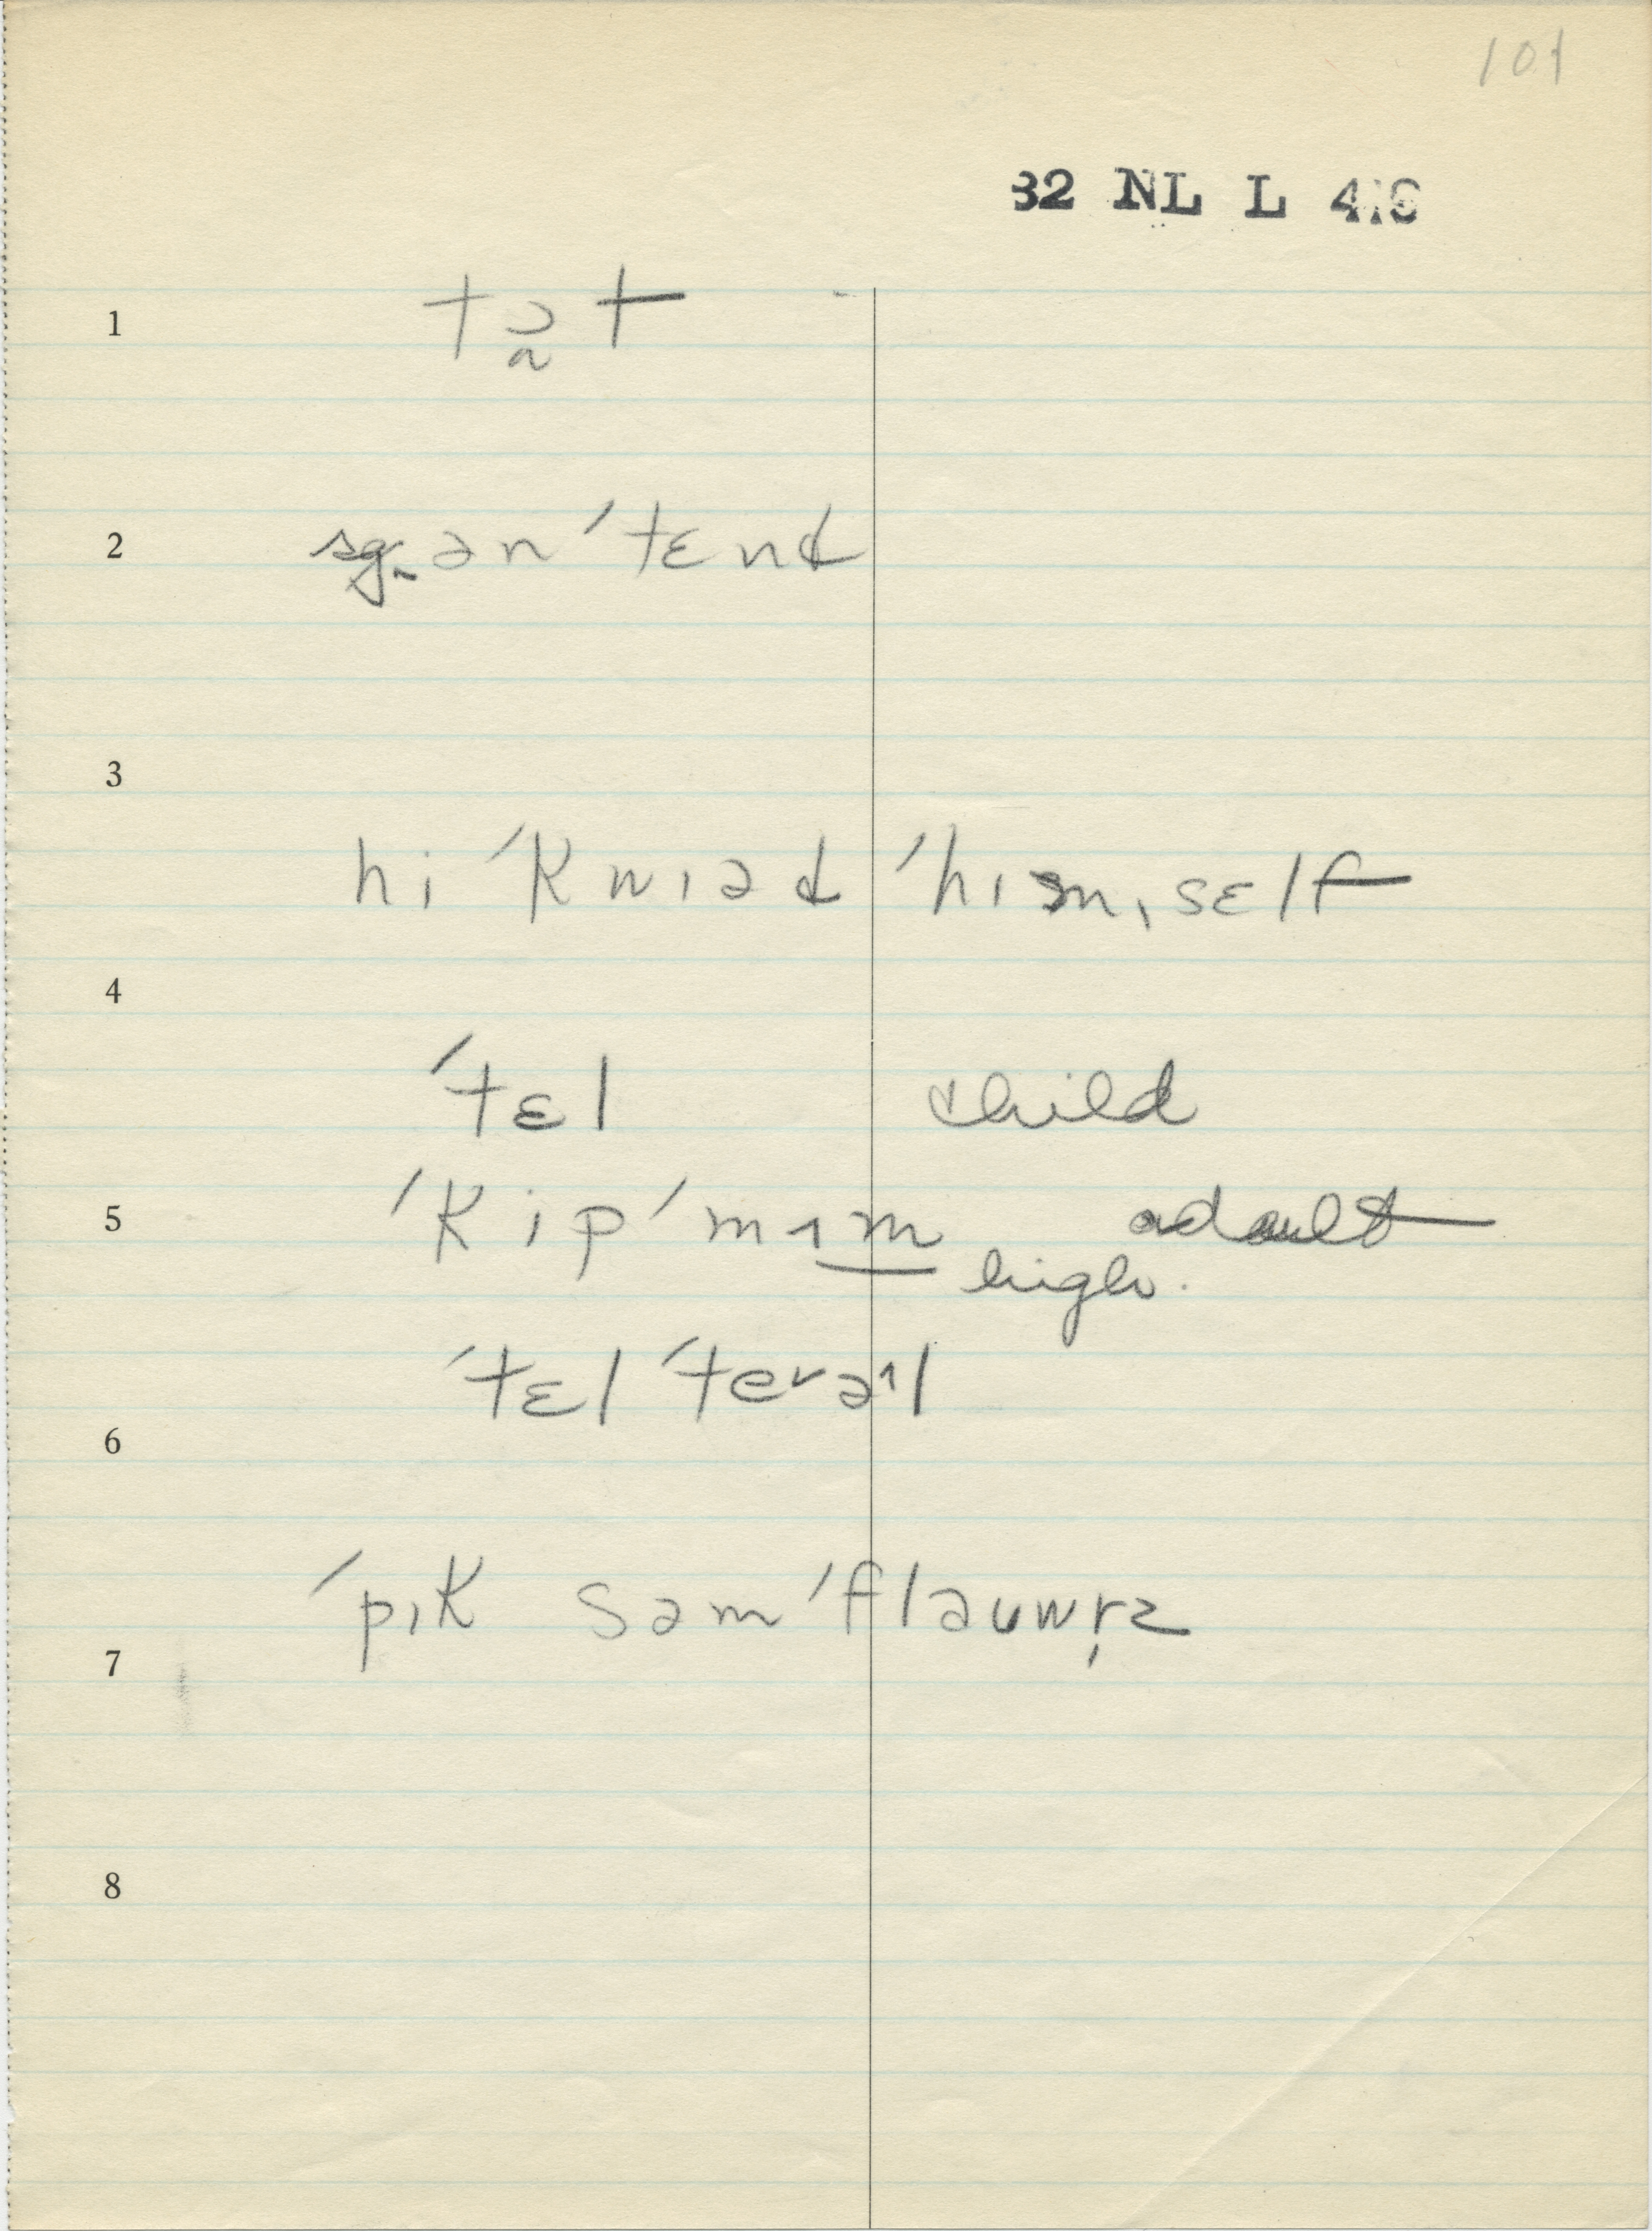 101
32 NL L 4
1 tɔ̰t
2 sg. ən ˈtɛnd
3
hi ˈkwɪəd ˈhɪmˌsɛlf
4
ˈtɛl child
5 ˈkip ˈmɪm adault
high.
ˈtɛl ˈterəˈl
6
ˈpɪk səm ˈflauwr̩z
7
8